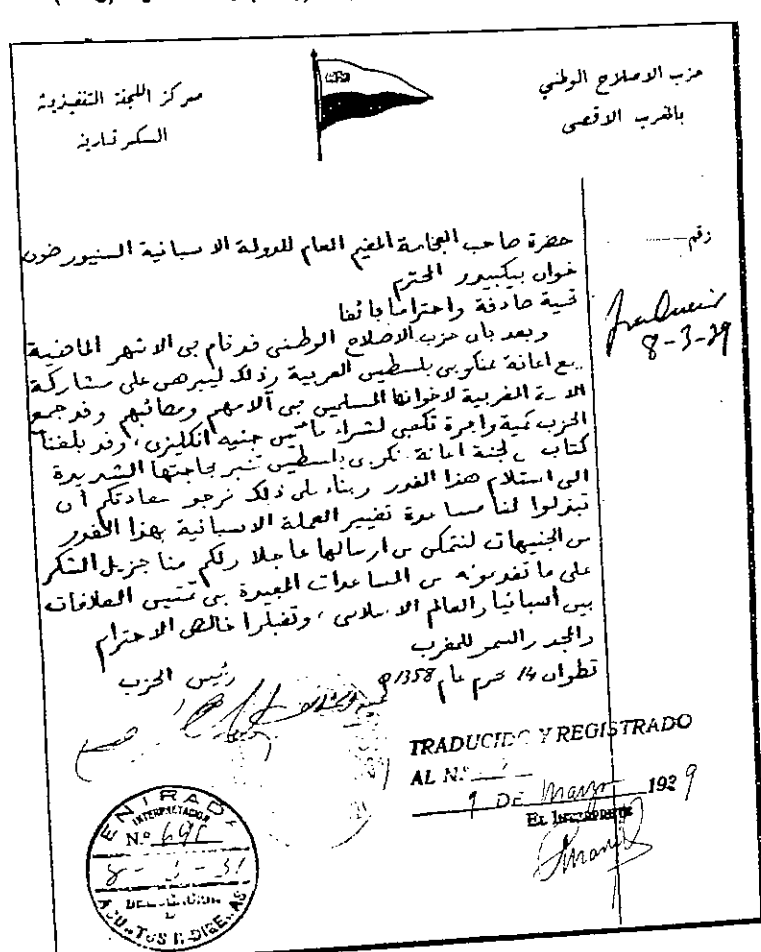 حزب الاصلاح الوطني
بالمغرب الاقصى
مركز اللجنة التنفيذية
السكرتارية
رقم
8-3-39
حضرة صاحب الفخامة المقيم العام للدولة الاسبانية السنيور ضون
خوان بيكبيدر المحترم
تحية صادقة واحتراما فائقا
وبعد فان حزب الاصلاح الوطني قد قام في الاشهر الماضية
بجمع اعانة لمنكوبي فلسطين العربية وذلك ليبرهن على مشاركة
الامة المغربية لاخوانها المسلمين في آلامهم ومصائبهم وقد جمع
الحزب كمية وافرة تكفي لشراء مائتين جنيه انكليزي، وقد بلغنا
كتاب من لجنة اعانة منكوبي فلسطين تخبر بحاجتها الشديدة
الى استلام هذا القدر وبناء على ذلك نرجو سعادتكم أن
تبذلوا لنا مساعدة تغيير العملة الاسبانية بهذا القدر
من الجنيهات لنتمكن من ارسالها عاجلا ولكم منا جزيل الشكر
على ما تقدمونه من المساعدات المفيدة في تمتين العلاقات
بين أسبانيا والعالم الاسلامي، وتقبلوا خالص الاحترام
والمجد والسمو للمغرب
تطوان 14 محرم عام 1358
رئيس الحزب
TRADUCIDO Y REGISTRADO
AL N.º
9 DE Marzo 1939
EL INTERPRETE
ENTRADA
INTERPRETACION
N.º 695
DELEGACION
DE
ASUNTOS INDIGENAS